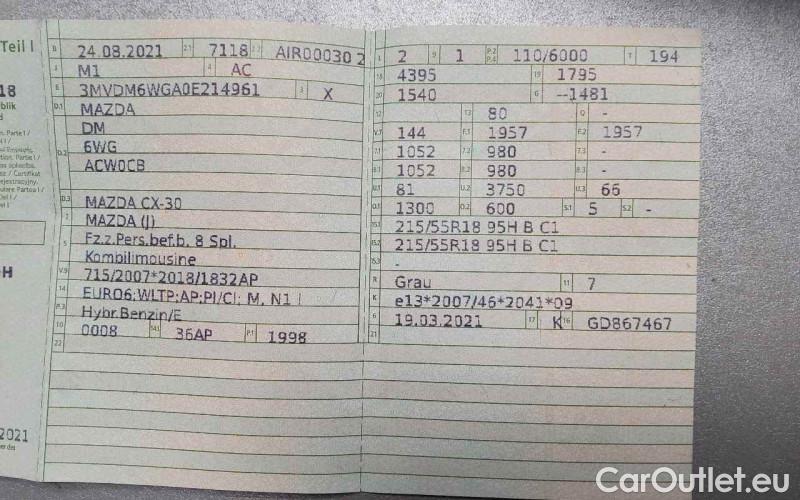 Teil I
B 24.08.2021 2.1 7118 2.2 AIR00030 2
J M1 4 AC
E 3MVDM6WGA0E214961 3 X
D.1 MAZDA
DM
D.2 6WG
ACW0CB
D.3 MAZDA CX-30
2 MAZDA (J)
5 Fz.z.Pers.bef.b. 8 Spl.
Kombilimousine
V.9 715/2007*2018/1832AP
14 EURO6;WLTP;AP;PI/CI; M, N1 I
P.3 Hybr.Benzin/E
10 0008 14.1 36AP P.1 1998
22
L 2 9 1 P.2 P.4 110/6000 T 194
18 4395 19 1795
20 1540 G --1481
12 - 13 80 Q -
V.7 144 F.1 1957 F.2 1957
7.1 1052 7.2 980 7.3 -
8.1 1052 8.2 980 8.3 -
U.1 81 U.2 3750 U.3 66
O.1 1300 O.2 600 S.1 5 S.2 -
15.1 215/55R18 95H B C1
15.2 215/55R18 95H B C1
15.3 -
R Grau 11 7
K e13*2007/46*2041*09
6 19.03.2021 17 K 16 GD867467
21
18
blik
H
2021
CarOutlet.eu